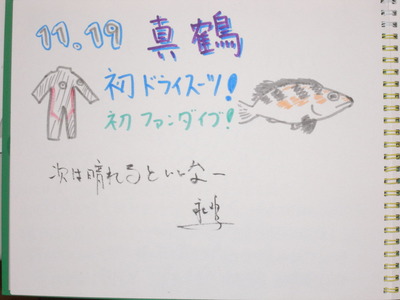 11.19 真鶴
初ドライスーツ!
初ファンダイブ!
次は晴れるといいなー